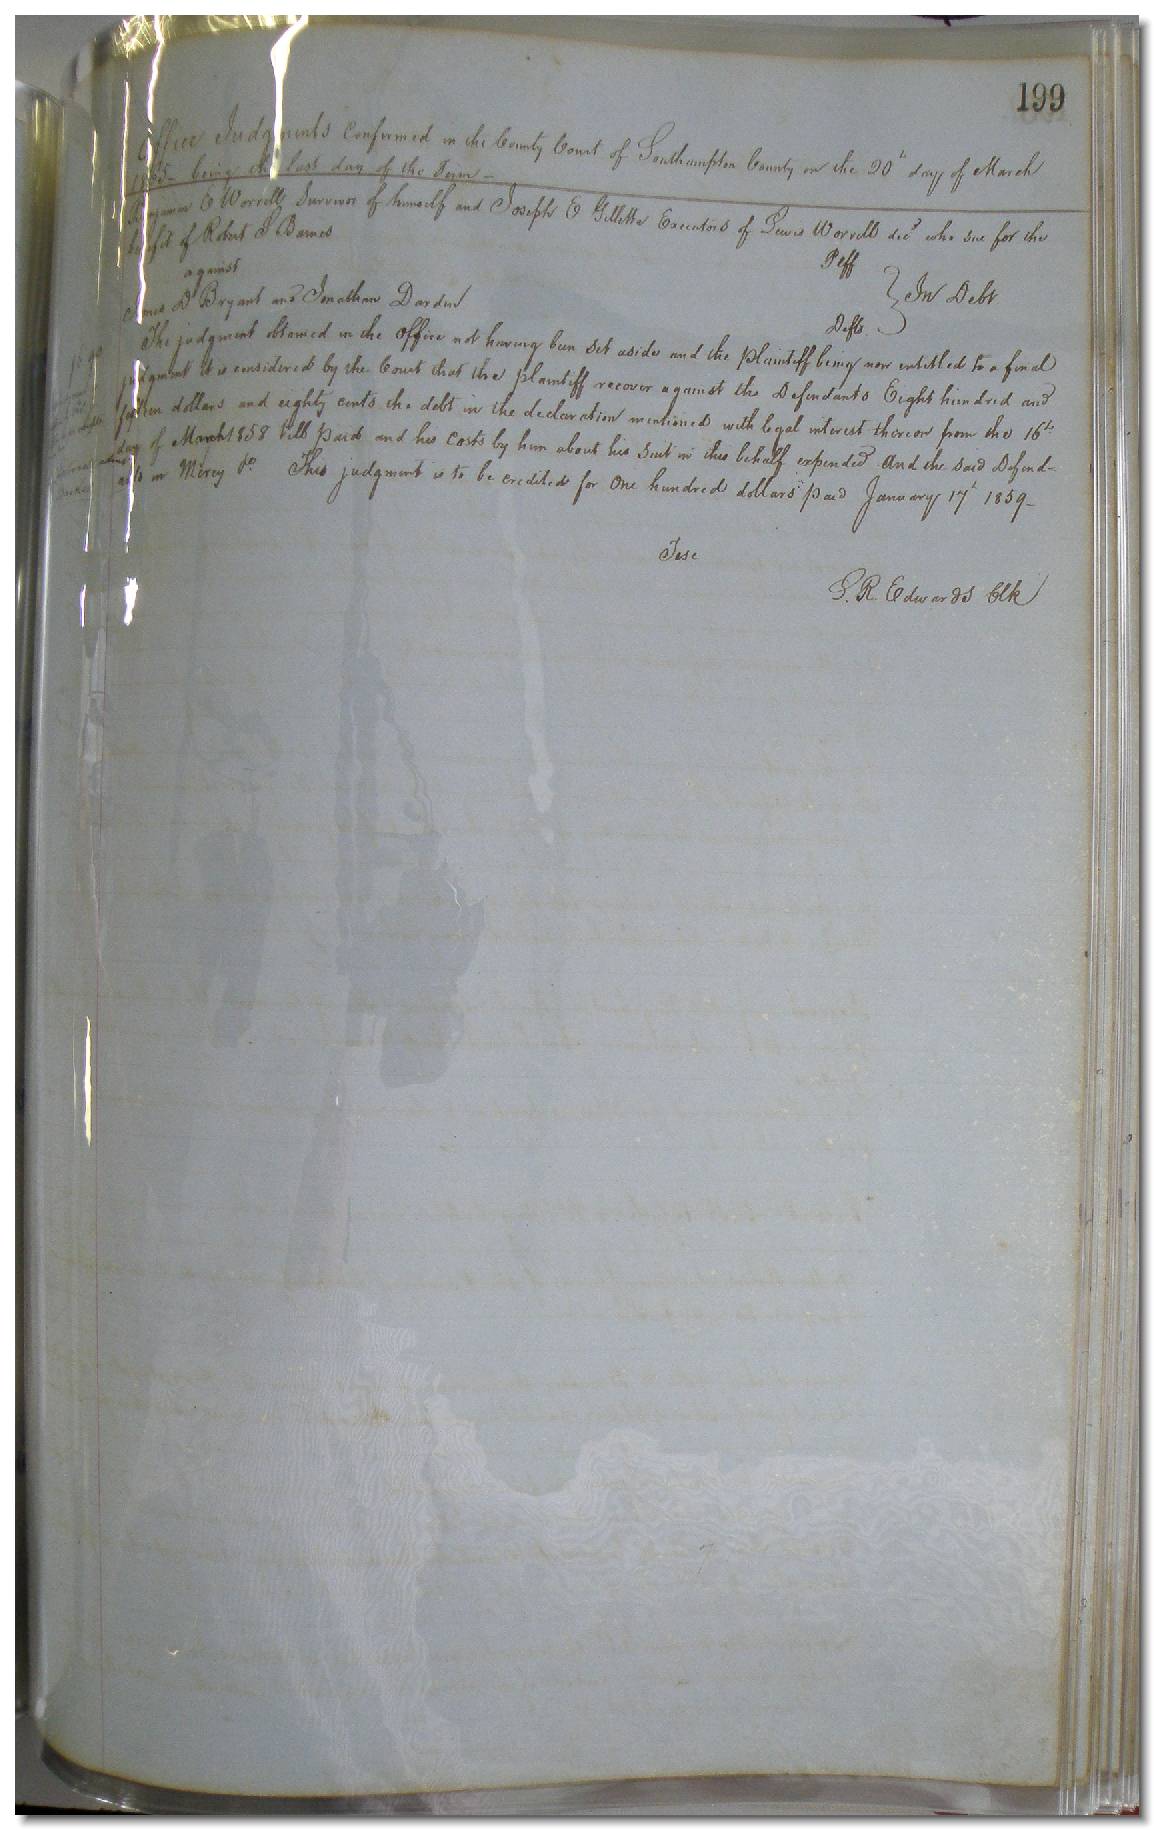 199
Office Judgments Confirmed in the County Court of Southampton County on the 20th day of March
being the last day of the Term -
Benjamin E Worrell, Survivor of himself and Joseph E Gillette Executors of Lewis Worrell decd who sue for the
benefit of Robert S Barnes
Plff
against
In Debt
James D Bryant and Jonathan Darden
Defts
The judgment obtained in the Office not having been set aside and the plaintiff being now entitled to a final
judgment It is considered by the Court that the plaintiff recover against the Defendants Eight hundred and
fifteen dollars and eighty cents the debt in the declaration mentioned with legal interest thereon from the 16th
day of March 1858 till paid and his Costs by him about his Suit in this behalf expended And the said Defend-
ants in Mercy &c This judgment is to be credited for One hundred dollars paid January 17th 1859-
Teste
L. R. Edwards Clk